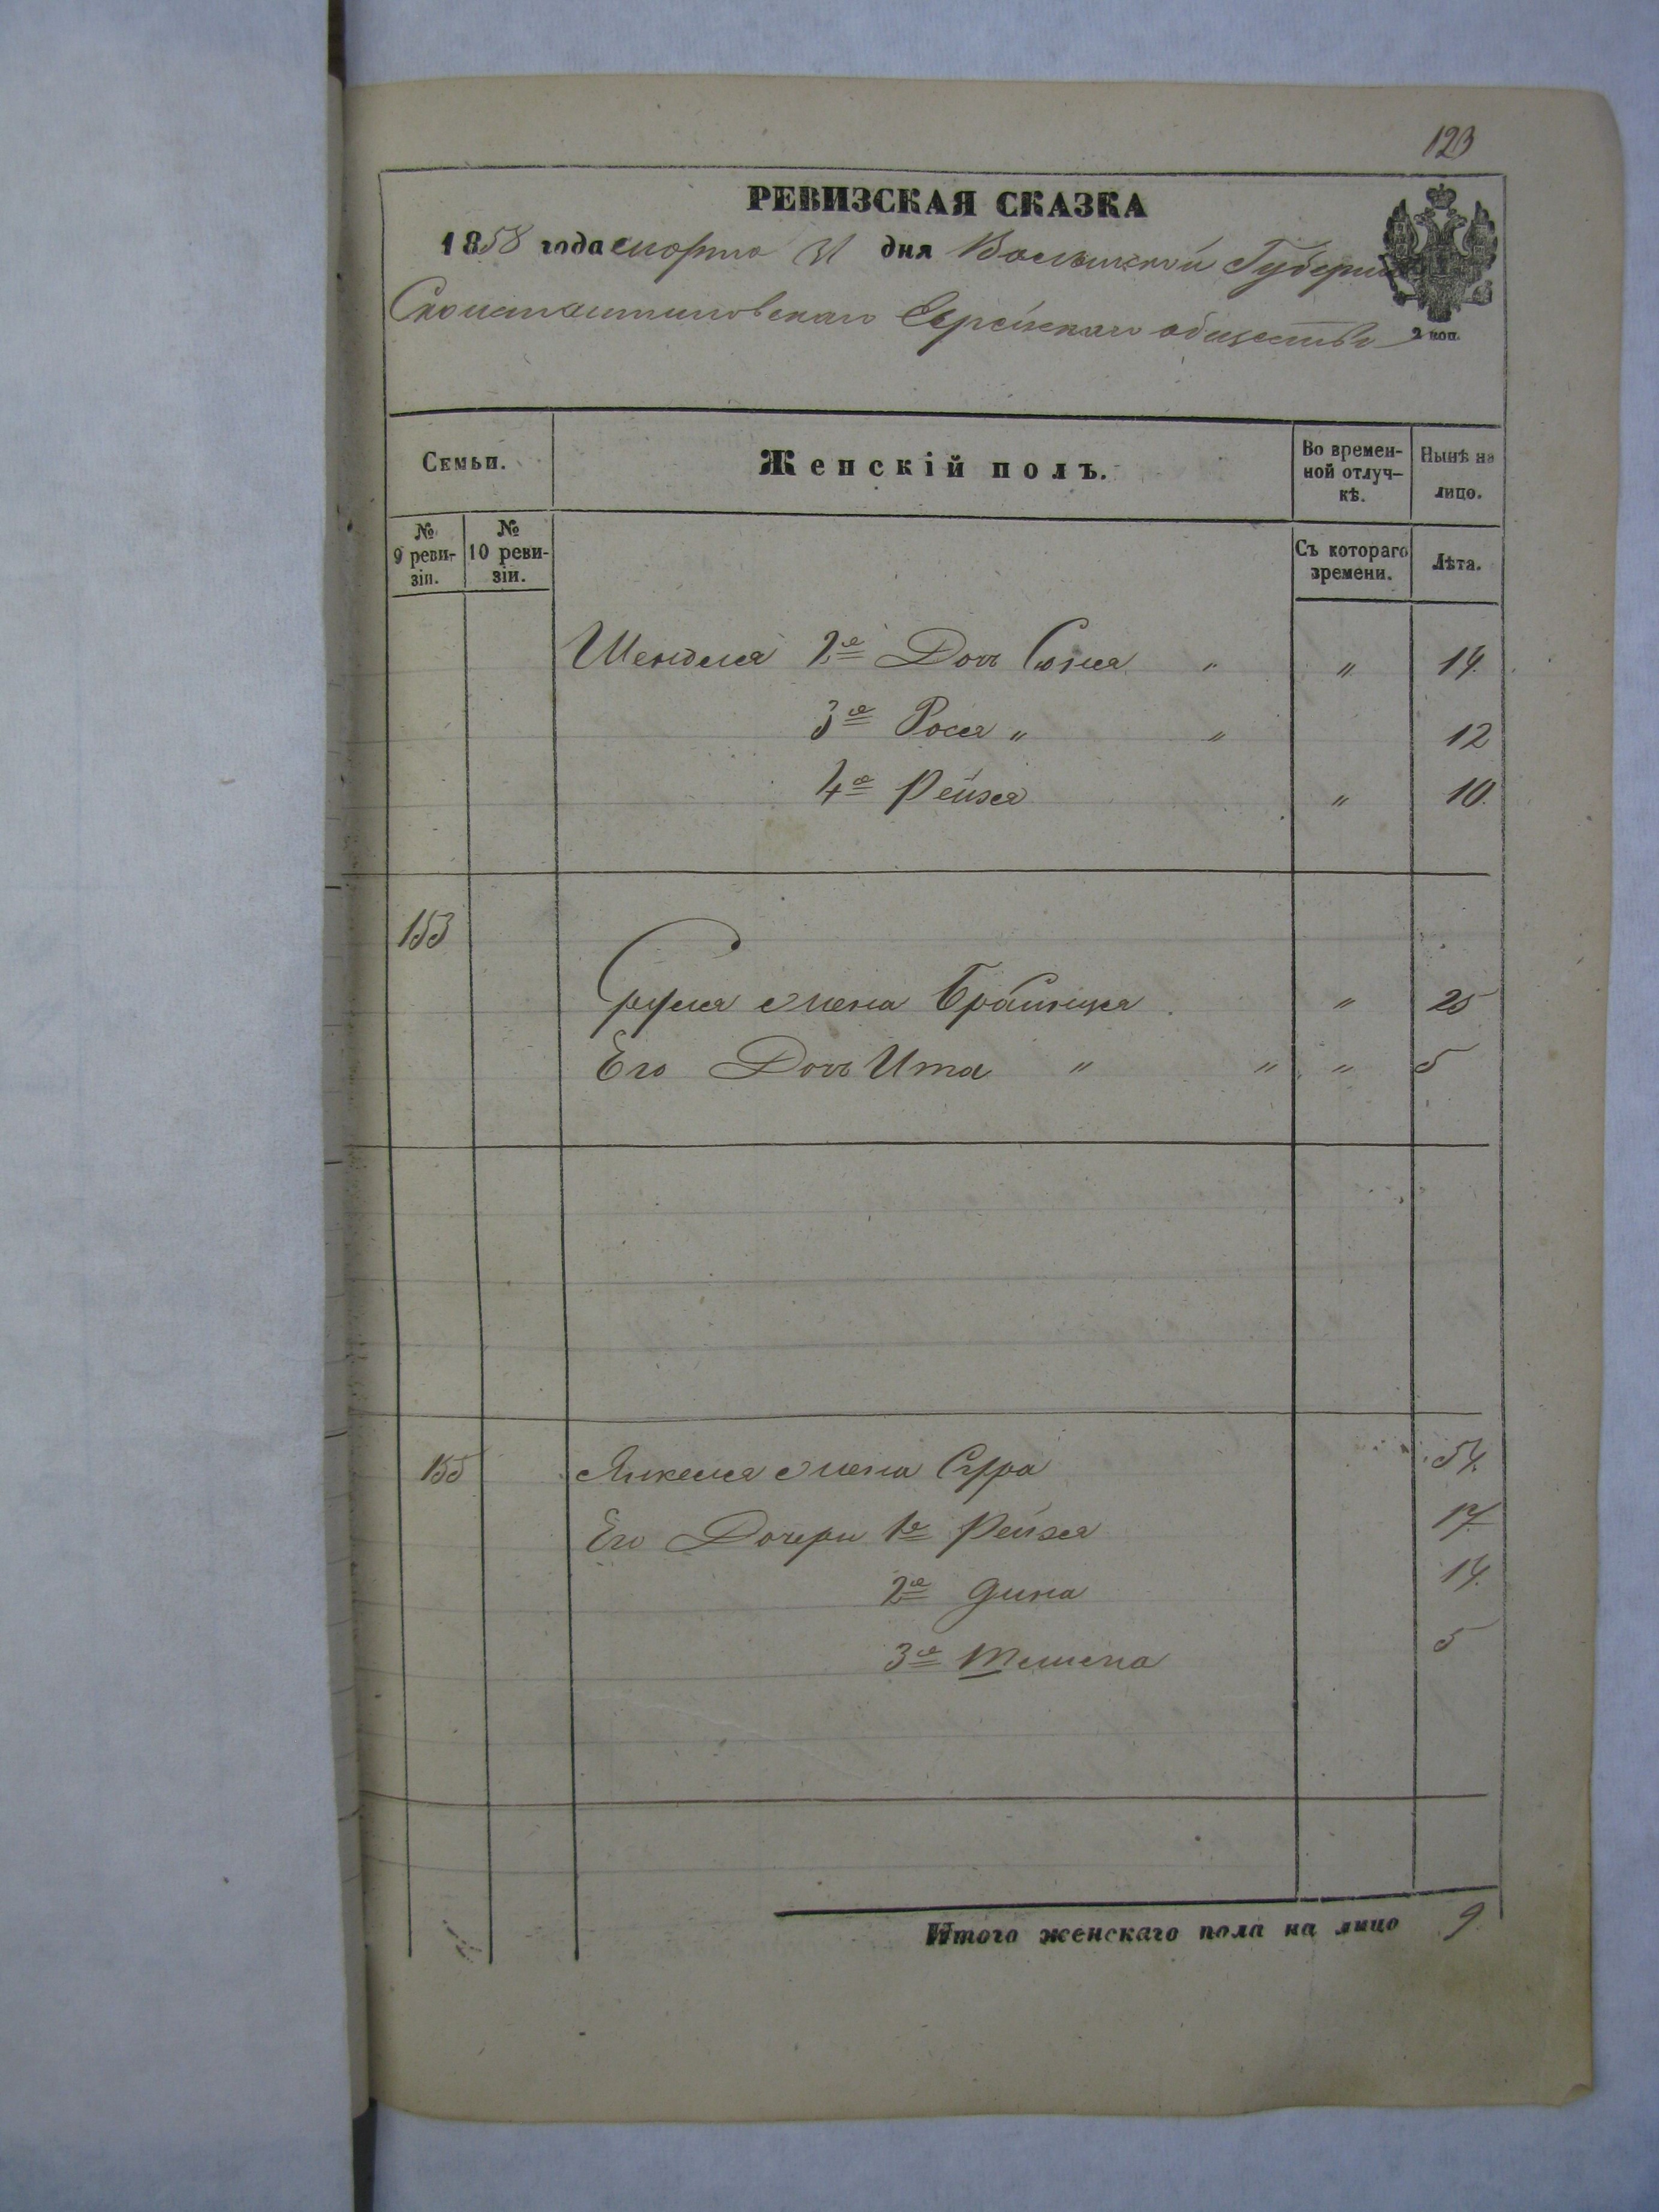 123
РЕВИЗСКАЯ СКАЗКА
1858 года марта 31 дня Волынской Губерніи
Сконстантиновскаго Еврейскаго общества
2 коп.
Семьи.
Женскій полъ.
Во времен-
ной отлуч-
кѣ.
Нынѣ на
лицо.
№
9 реви-
зіи.
№
10 реви-
зіи.
Съ котораго
времени.
Лѣта.
Шендля 2я Дочь Сюня " " 14.
3я Рося " " 12
4я Рейзя " 10.
153
жена Брайнця " 25
Его Дочь Ита " " " 5
155 Янкеля жена Сура 54.
Его Дочери 1я Рейзя 17.
2я Дина 14.
3я 5
Итого женскаго пола на лицо 9